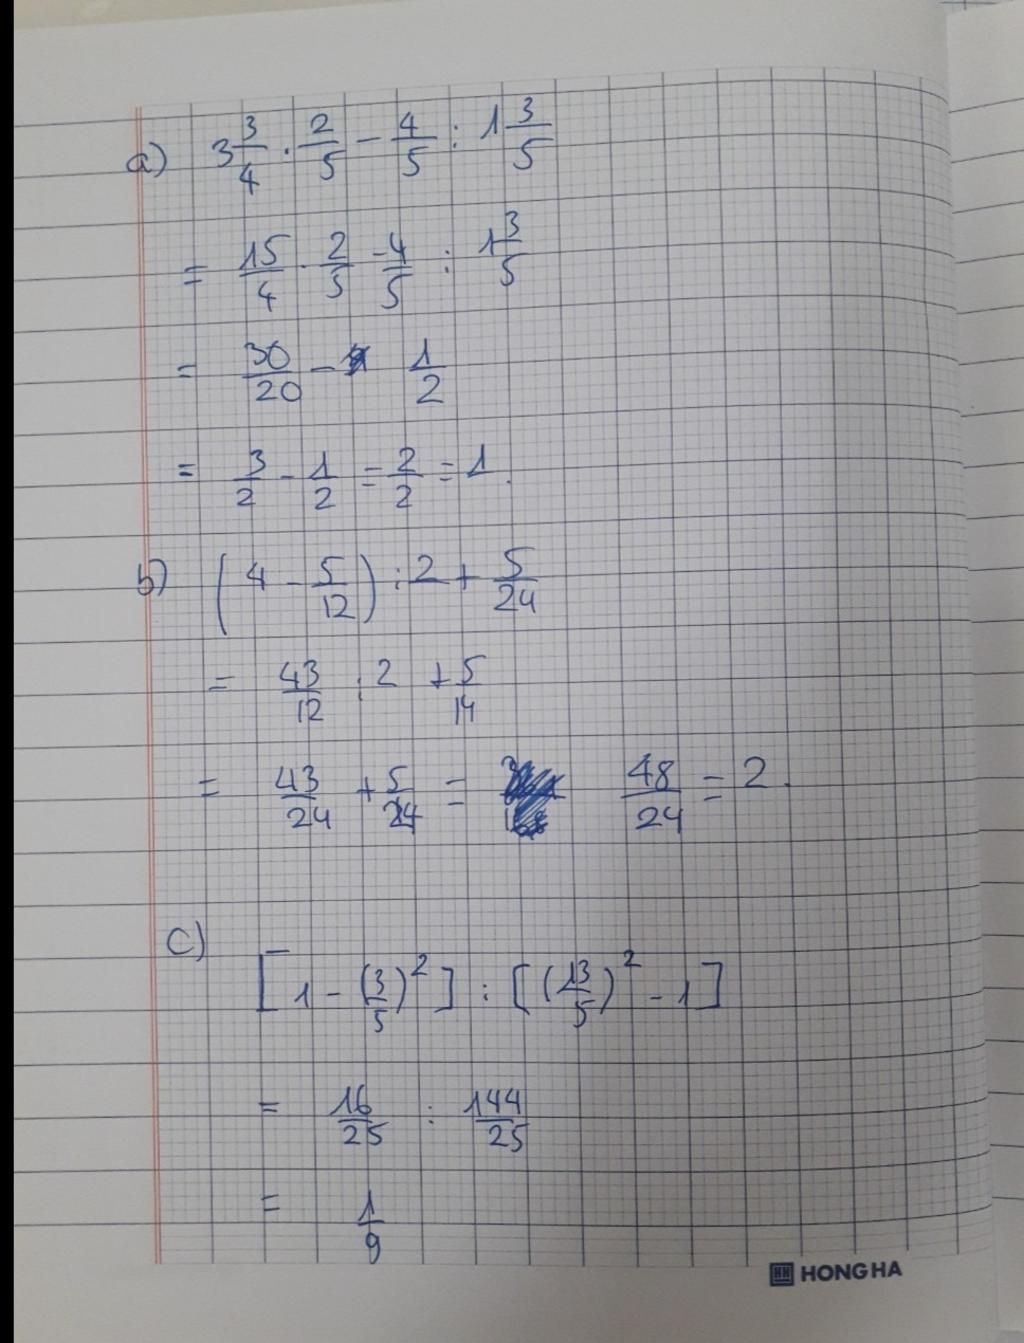 a) 3 3/4 . 2/5 - 4/5 : 1 3/5
= 15/4 . 2/5 - 4/5 : 1 3/5
= 30/20 - 1/2
= 3/2 - 1/2 = 2/2 = 1.
b) (4 - 5/12) : 2 + 5/24
= 43/12 : 2 + 5/14
= 43/24 + 5/24 = 48/24 = 2.
c)
[1 - (3/5)²] : [(13/5)² - 1]
= 16/25 : 144/25
= 1/9
HONG HA